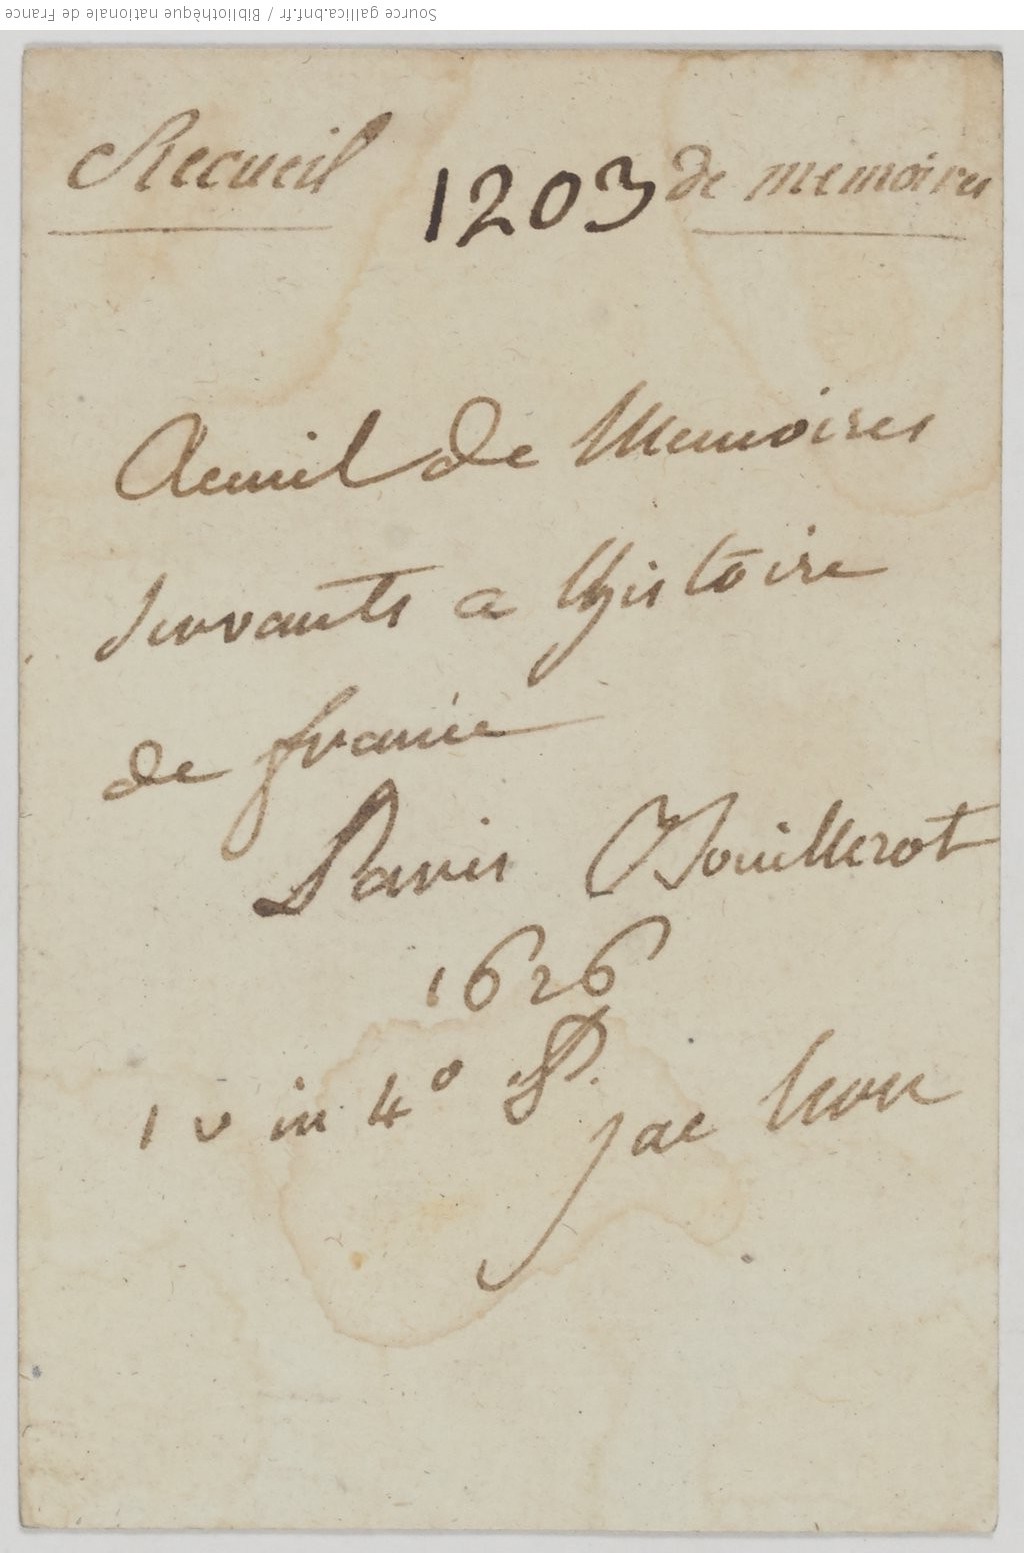 Source gallica.bnf.fr / Bibliothèque nationale de France
Recueil 1203 de memoires
Recueil de Memoires
servants a lhistoire
de france
Paris Bouillerot
1626
1 v in 4°
jac